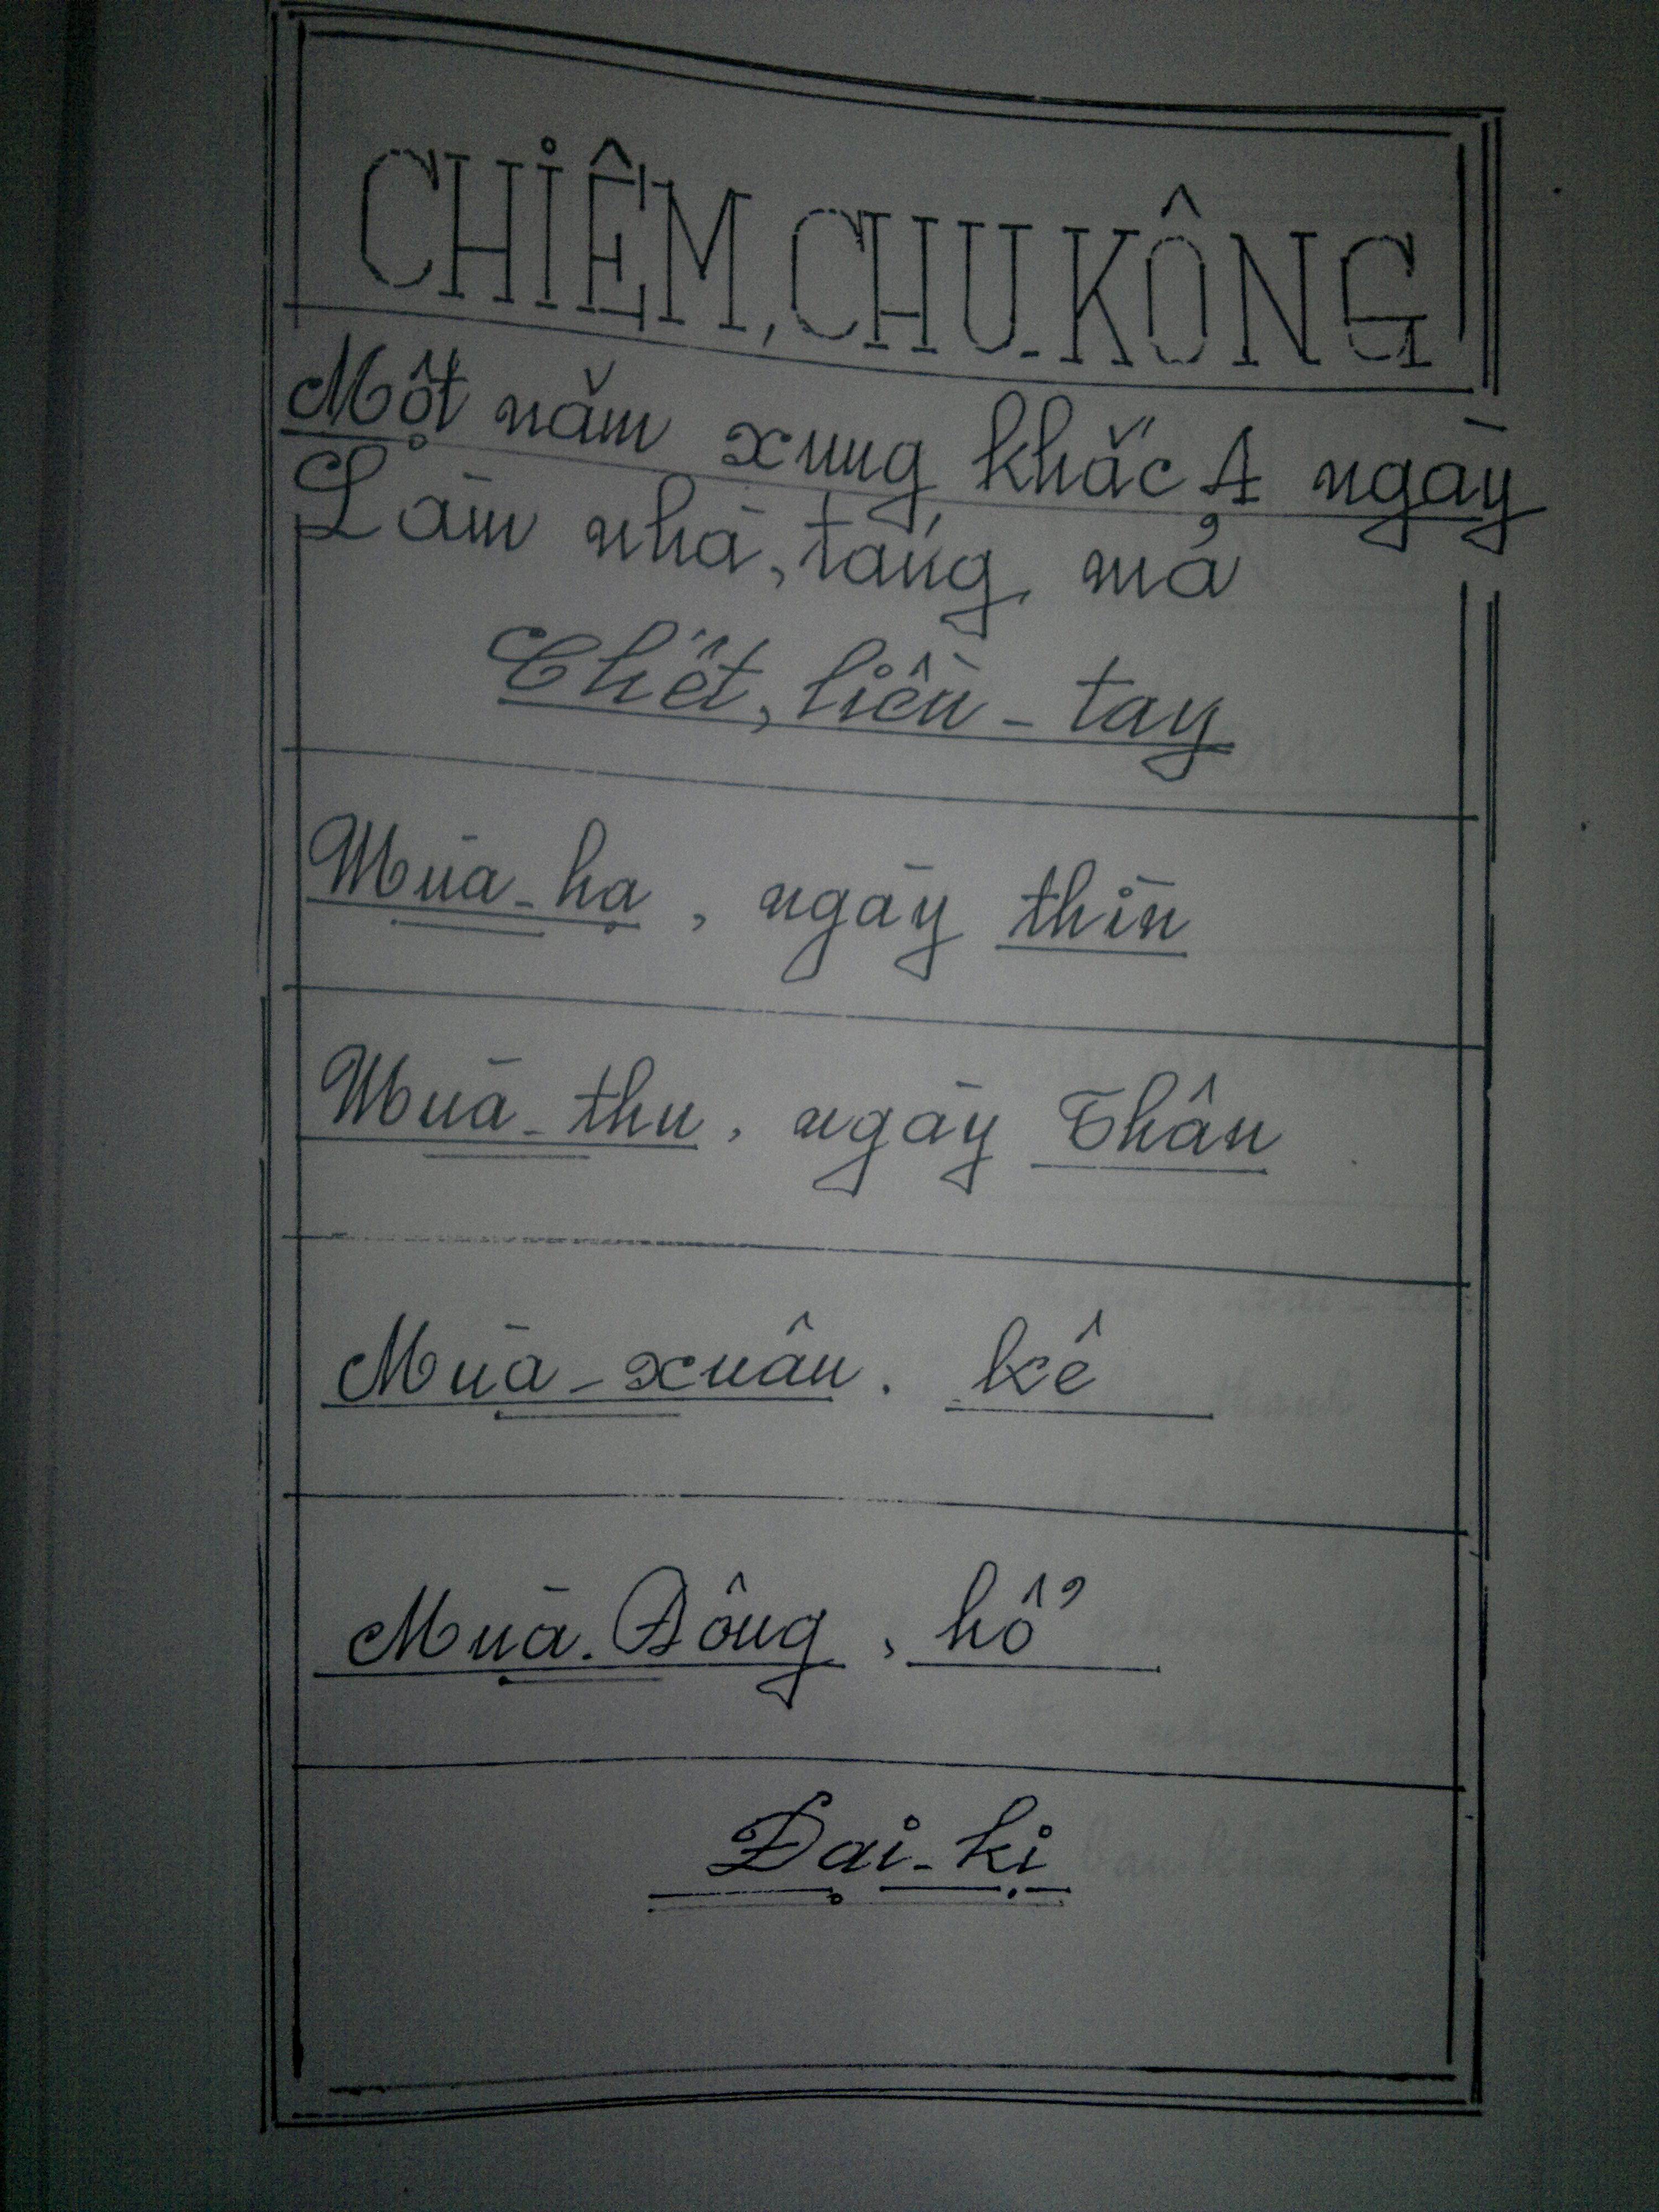 CHIÊM, CHU-KÔNG
Một năm xung khắc 4 ngày
Làm nhà, táng, mả
Chết, liền - tay
Mùa - hạ, ngày thìn
Mùa - thu, ngày Thân
Mùa - xuân. kê
Mùa. Đông, hổ
Đại - kị